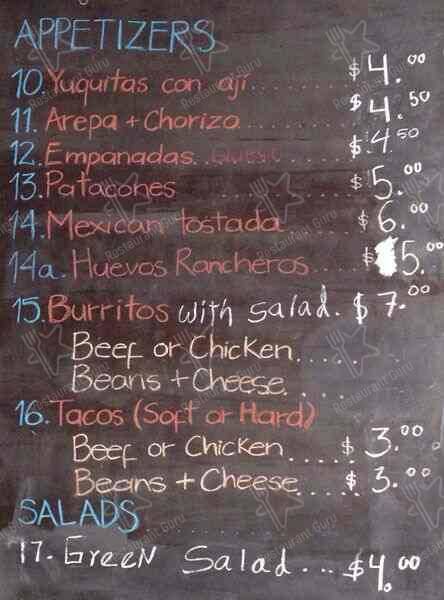 APPETIZERS
10. Yuquitas con ají ........ $4.00
11. Arepa + Chorizo ........ $4.50
12. Empanadas ...... $4.50
13. Patacones ........ $5.00
14. Mexican tostada .... $6.00
14a. Huevos Rancheros .... $5.00
15. Burritos with salad. $7.00
Beef or Chicken ....
Beans + Cheese ....
16. Tacos (Soft or Hard)
Beef or Chicken .... $3.00
Beans + Cheese ..... $3.00
SALADS
17. Green Salad ... $4.00